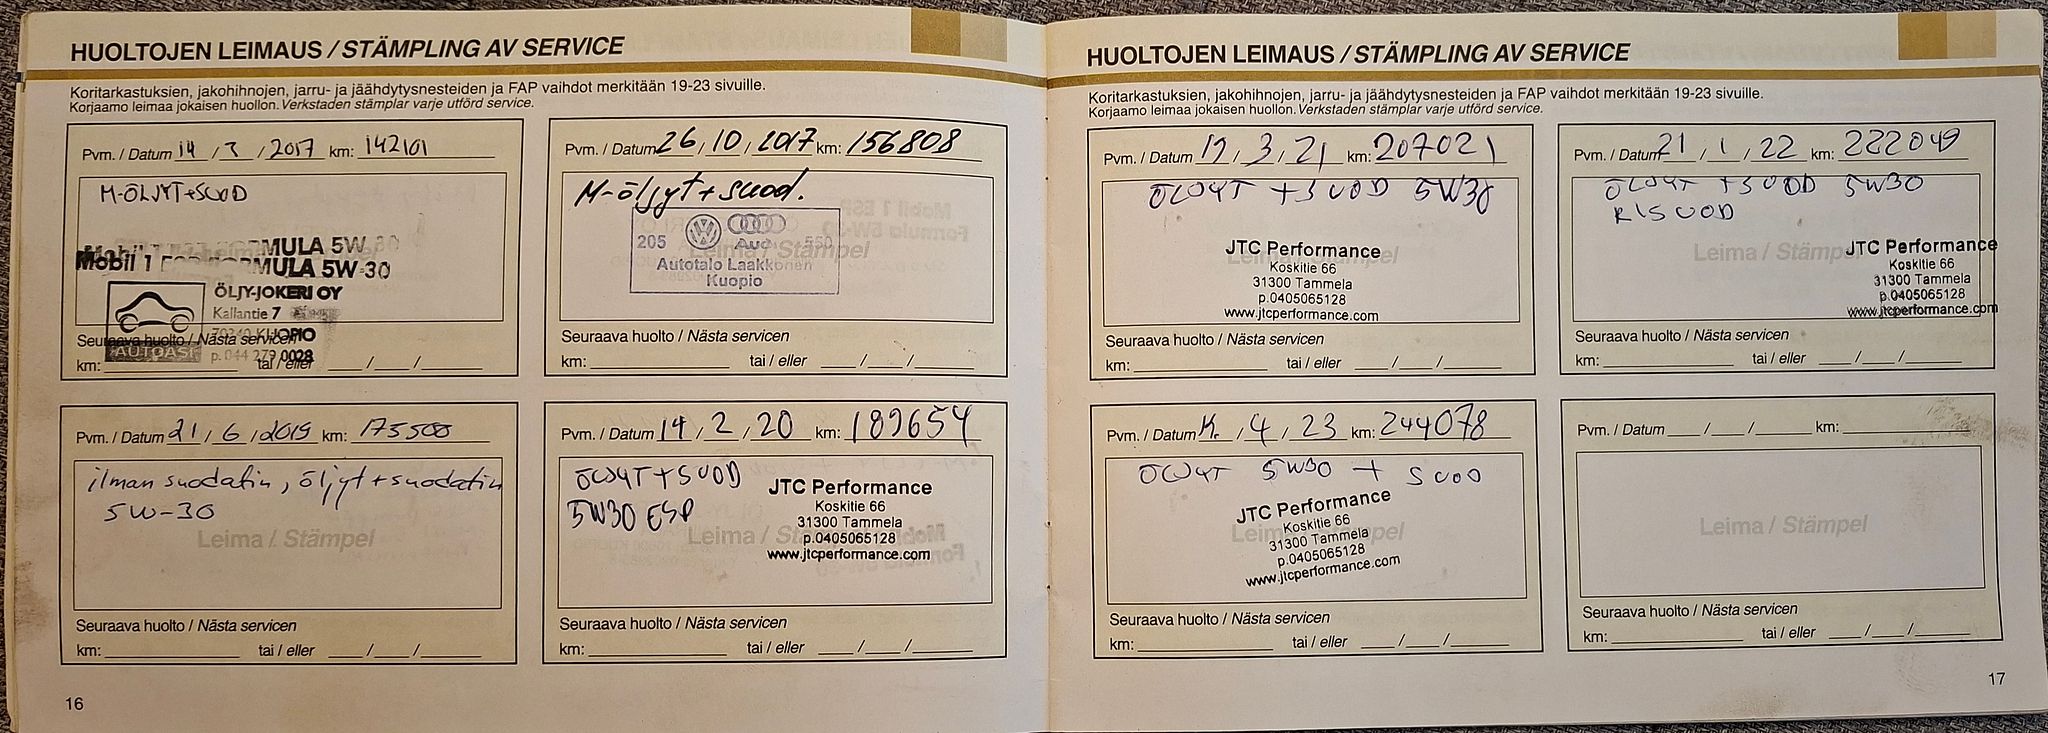 HUOLTOJEN LEIMAUS / STÄMPLING AV SERVICE
Koritarkastuksien, jakohihnojen, jarru- ja jäähdytysnesteiden ja FAP vaihdot merkitään 19-23 sivuille.
Korjaamo leimaa jokaisen huollon. Verkstaden stämplar varje utförd service.
Pvm. / Datum 14 / 3 / 2017 km: 142101
M-ÖLJYT+SUOD
Mobil 1 ESP FORMULA 5W-30
Mobil 1 ESP FORMULA 5W-30
ÖLJY-JOKERI OY
Kallantie 7
70340 KUOPIO
p. 044 279 0028
AUTOASI
Seuraava huolto / Nästa servicen
km: tai / eller / /
Pvm. / Datum 26 / 10 / 2017 km: 156808
M-öljyt + suod.
205 Audi 550
Leima / Stämpel
Autotalo Laakkonen
Kuopio
Seuraava huolto / Nästa servicen
km: tai / eller / /
Pvm. / Datum 21 / 6 / 2019 km: 175500
ilman suodatin, öljyt + suodatin
5W-30
Leima / Stämpel
Seuraava huolto / Nästa servicen
km: tai / eller / /
Pvm. / Datum 14 / 2 / 20 km: 189654
ÖLJYT + SUOD
5W30 ESP
Leima / Stämpel
JTC Performance
Koskitie 66
31300 Tammela
p.0405065128
www.jtcperformance.com
Seuraava huolto / Nästa servicen
km: tai / eller / /
16
HUOLTOJEN LEIMAUS / STÄMPLING AV SERVICE
Koritarkastuksien, jakohihnojen, jarru- ja jäähdytysnesteiden ja FAP vaihdot merkitään 19-23 sivuille.
Korjaamo leimaa jokaisen huollon. Verkstaden stämplar varje utförd service.
Pvm. / Datum / 3 / 21 km: 207021
ÖLJYT + SUOD 5W30
Leima / Stämpel
JTC Performance
Koskitie 66
31300 Tammela
p.0405065128
www.jtcperformance.com
Seuraava huolto / Nästa servicen
km: tai / eller / /
Pvm. / Datum 21 / 1 / 22 km: 222049
ÖLJYT + SUOD 5W30
RISUOD
Leima / Stämpel
JTC Performance
Koskitie 66
31300 Tammela
p.0405065128
www.jtcperformance.com
Seuraava huolto / Nästa servicen
km: tai / eller / /
Pvm. / Datum / 4 / 23 km: 244078
ÖLJYT 5W30 + SUOD
Leima / Stämpel
JTC Performance
Koskitie 66
31300 Tammela
p.0405065128
www.jtcperformance.com
Seuraava huolto / Nästa servicen
km: tai / eller / /
Pvm. / Datum / / km:
Leima / Stämpel
Seuraava huolto / Nästa servicen
km: tai / eller / /
17